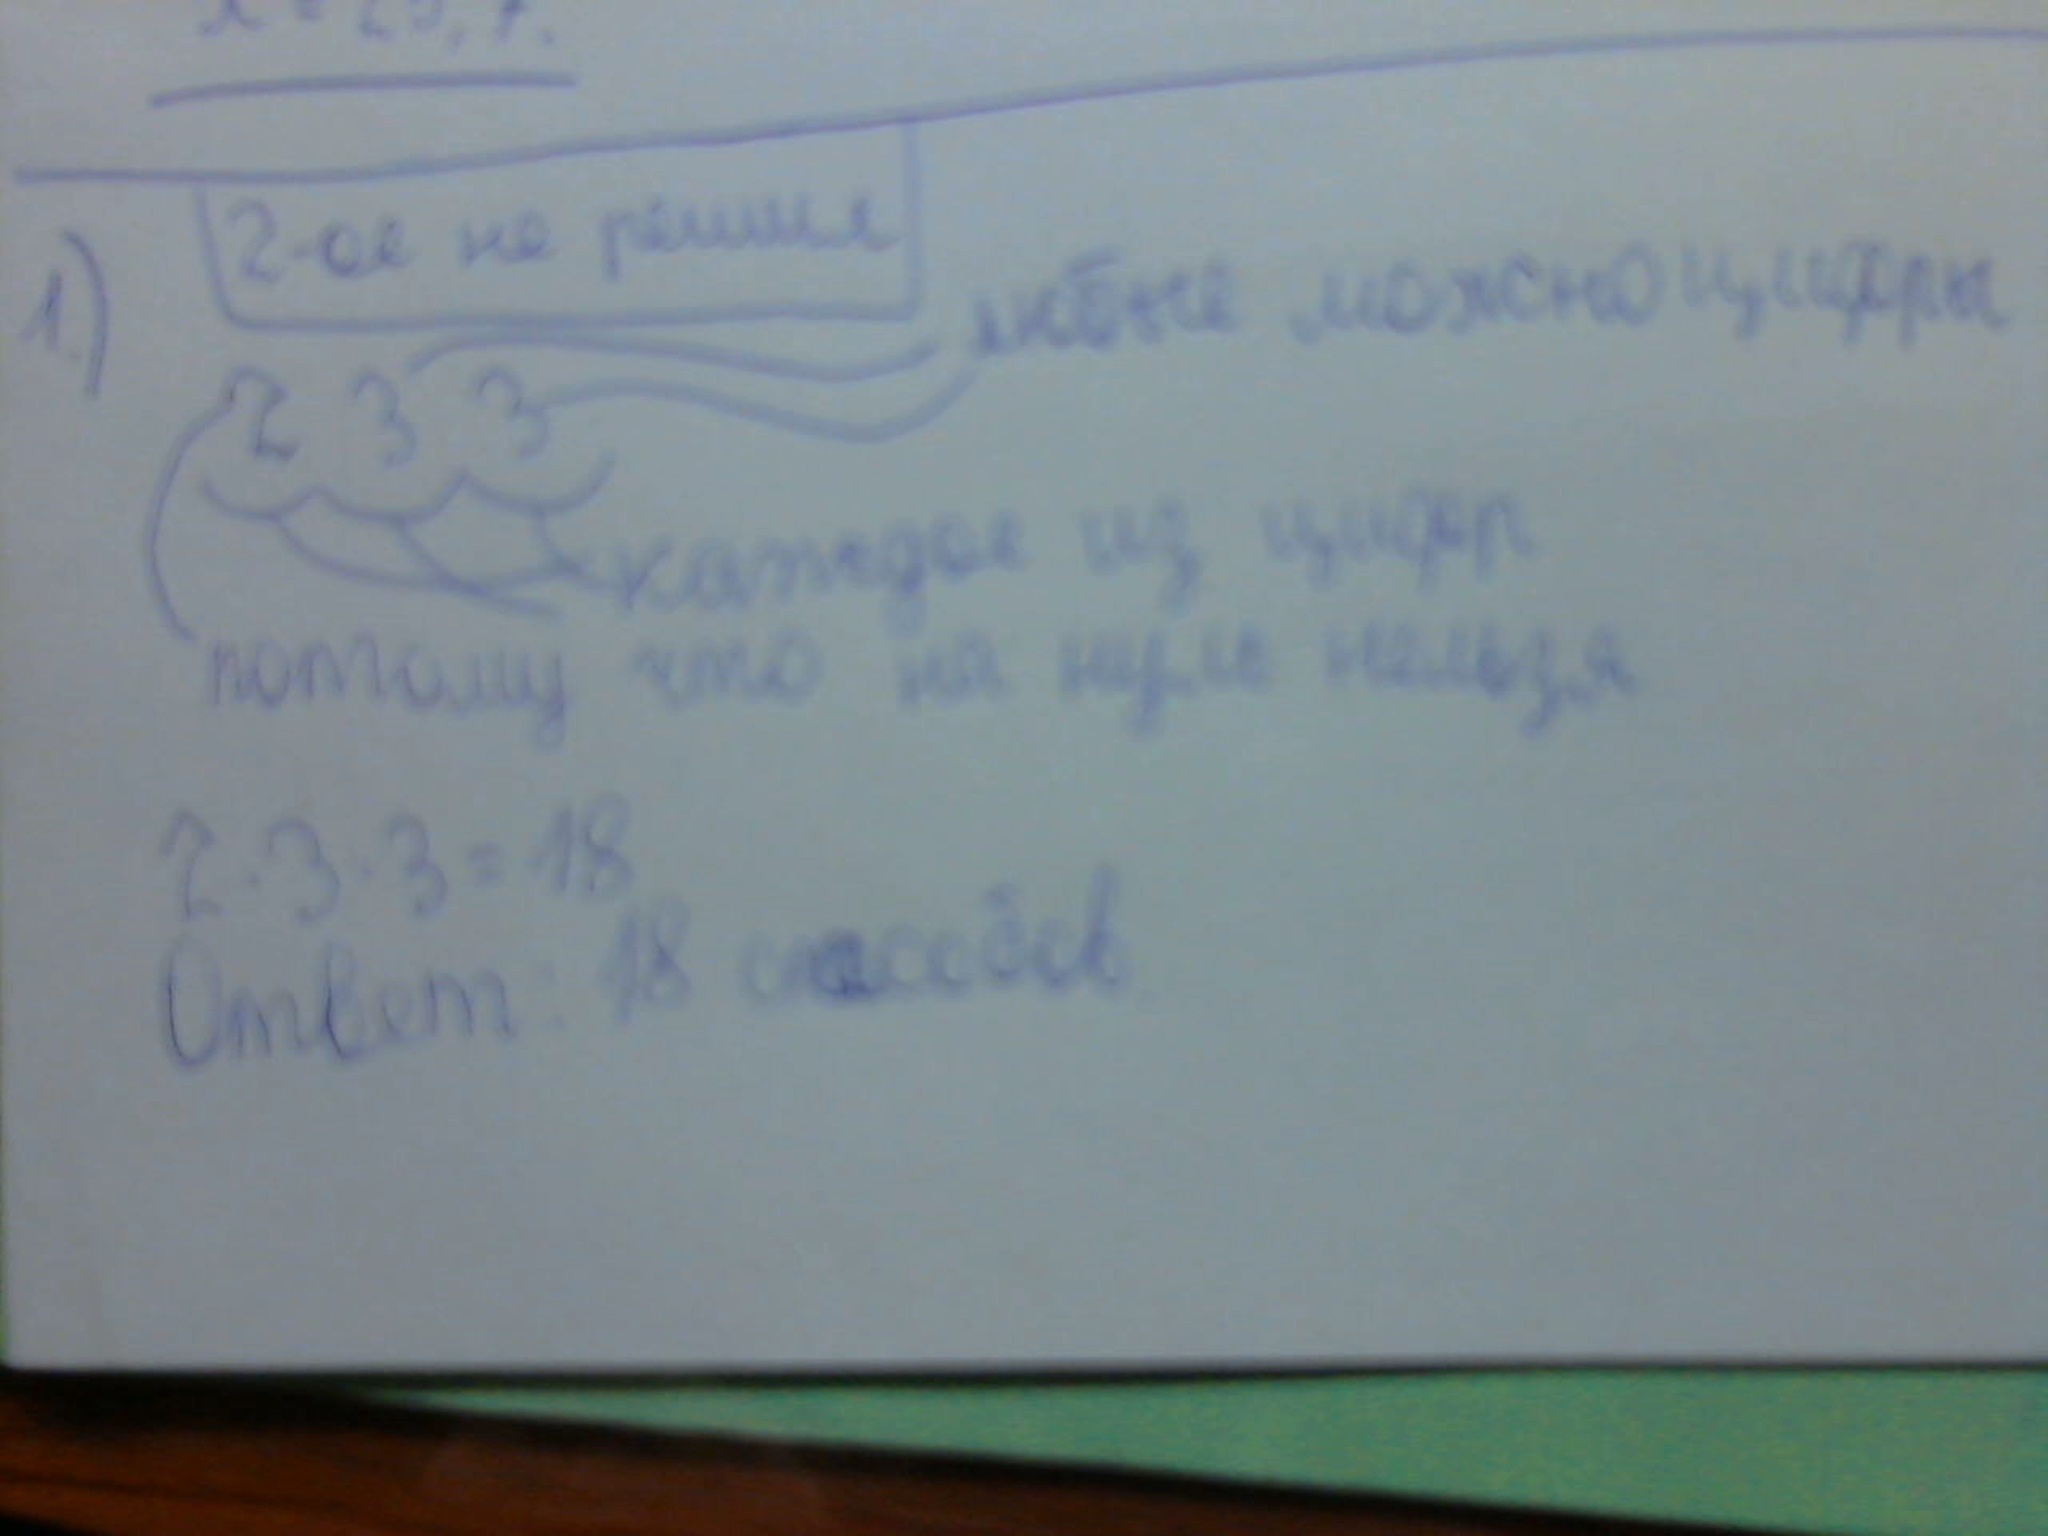 2-ое не решил
1.)
любые можно цифры
2 3 3
каждое из цифр
потому что на нуле нельзя
2·3·3=18
Ответ: 18 способов